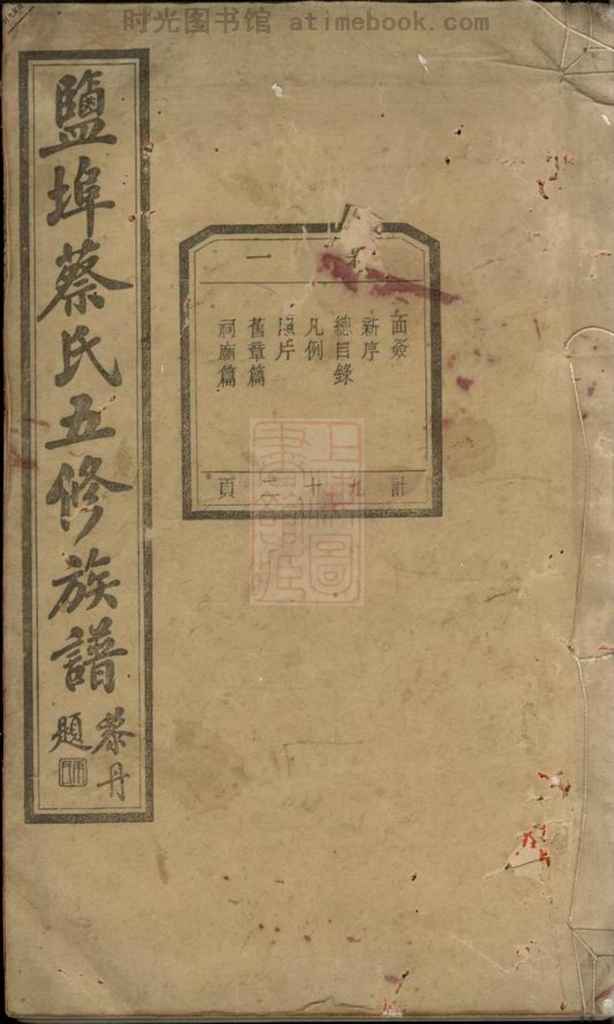 时光图书馆 atimebook.com
鹽埠蔡氏五修族譜
黎丹
題
一
面簽
新序
總目錄
凡例
照片
舊章篇
祠廟篇
計九十頁